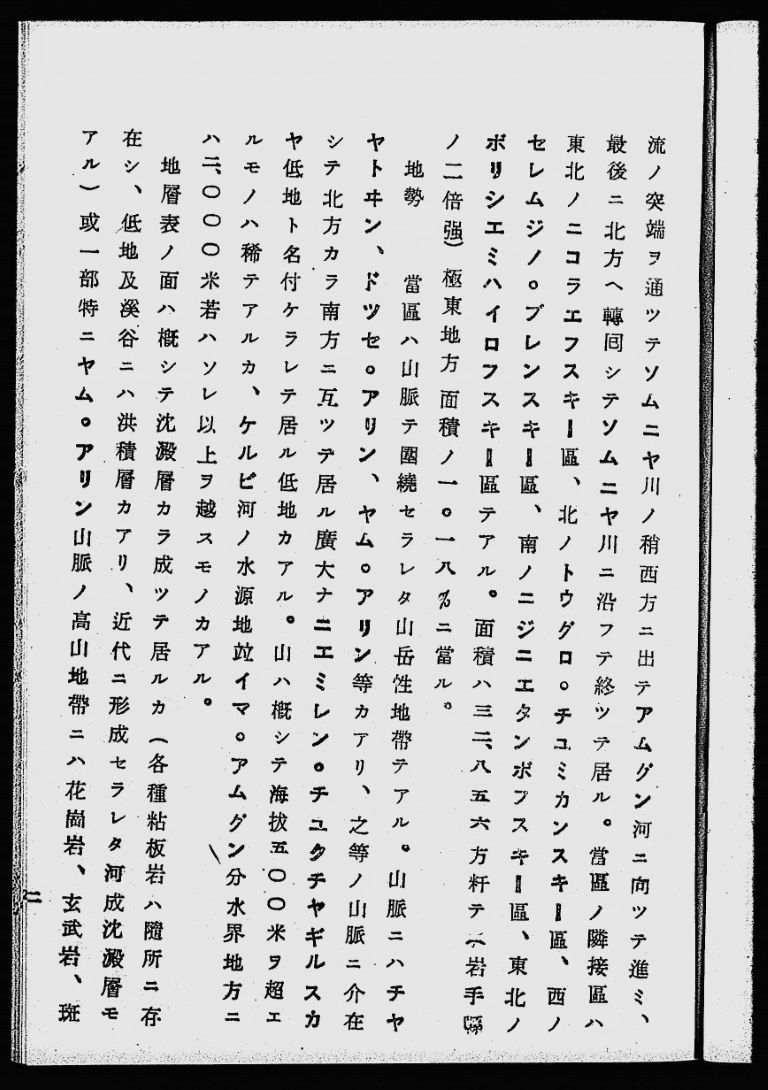 流ノ突端ヲ通ツテソムニヤ川ノ稍西方ニ出テアムグン河ニ向ツテ進ミ、
最後ニ北方ヘ轉囘シテソムニヤ川ニ沿フテ終ツテ居ル。當區ノ隣接區ハ
東北ノニコラエフスキー區、北ノトウグロ。チユミカンスキー區、西ノ
セレムジノ。ブレンスキー區、南ノニジニエタンボフスキー區、東北ノ
ボリシエミハイロフスキー區テアル。面積ハ三二、八五六方粁テ(岩手縣
ノ二倍强)極東地方面積ノ一。一八%ニ當ル。
地勢　當區ハ山脈テ圍繞セラレタ山岳性地帶テアル。山脈ニハチヤ
ヤトヰン、ドツセ。アリン、ヤム。アリン等カアリ、之等ノ山脈ニ介在
シテ北方カラ南方ニ亙ツテ居ル廣大ナニエミレン。チユクチヤギルスカ
ヤ低地ト名付ケラレテ居ル低地カアル。山ハ槪シテ海拔五〇〇米ヲ超エ
ルモノハ稀テアルカ、ケルビ河ノ水源地竝イマ。アムグン分水界地方ニ
ハ二、〇〇〇米若ハソレ以上ヲ越スモノカアル。
地層表ノ面ハ槪シテ沈澱層カラ成ツテ居ルカ(各種粘板岩ハ隨所ニ存
在シ、低地及溪谷ニハ洪積層カアリ、近代ニ形成セラレタ河成沈澱層モ
アル)或一部特ニヤム。アリン山脈ノ高山地帶ニハ花崗岩、玄武岩、斑
二